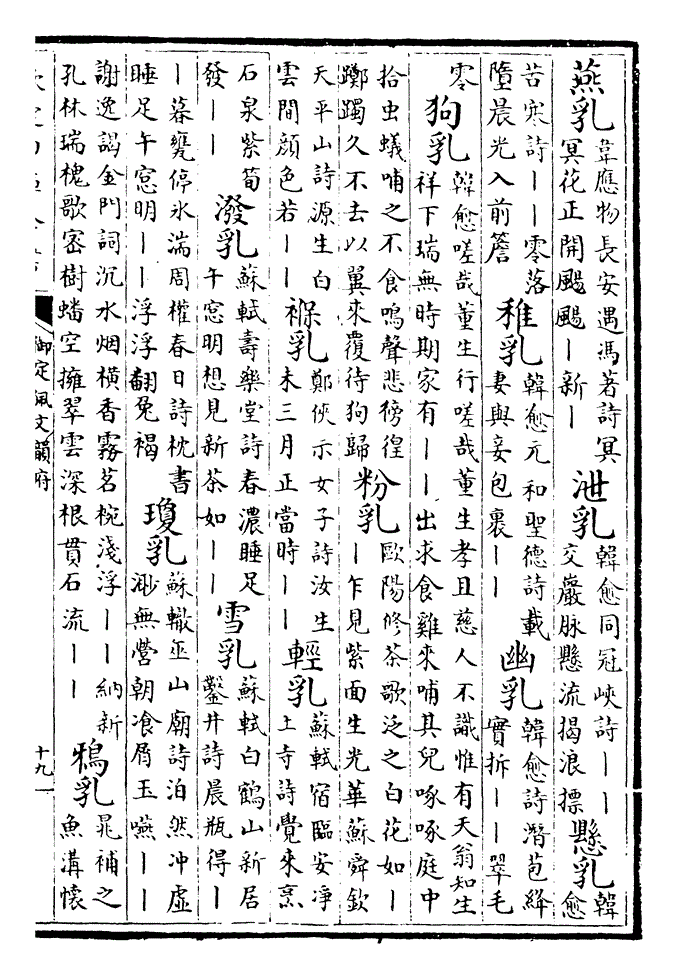 燕乳
韋應物長安遇馮著詩冥
冥花正開颺颺丨新丨
泄乳
韓愈同冠峽詩丨丨
交巖脉懸流揭浪摽
懸乳
韓
愈
苦寒詩丨丨零落
墮晨光入前簷
稚乳
韓愈元和聖德詩載
妻與妾包裹丨丨
幽乳
韓愈詩潛苞絳
實拆丨丨翠毛
零
狗乳
韓愈嗟哉董生行嗟哉董生孝且慈人不識惟有天翁知生
祥下瑞無時期家有丨丨出求食雞來哺其兒啄啄庭中
拾虫蟻哺之不食鳴聲悲徬徨
躑躅久不去以翼來覆待狗歸
粉乳
歐陽修茶歌泛之白花如丨
丨乍見紫面生光華蘇舜欽
天平山詩源生白
雲間顔色若丨丨
褓乳
鄭俠示女子詩汝生
未三月正當時丨丨
輕乳
蘇軾宿臨安淨
土寺詩覺來烹
石泉紫筍
發丨丨
潑乳
蘇軾壽樂堂詩春濃睡足
午窓明想見新茶如丨丨
雪乳
蘇軾白鶴山新居
鑿井詩晨瓶得丨
丨暮甕停氷湍周權春日詩枕書
睡足午窓明丨丨浮浮翻兔褐
瓊乳
蘇轍巫山廟詩泊然冲虚
渺無營朝飡屑玉嚥丨丨
謝逸謁金門詞沉水烟横香霧茗椀淺浮丨丨納新
孔林瑞槐歌密樹蟠空擁翠雲深根貫石流丨丨
鴉乳
晁補之
魚溝懷
御定佩文韻府
十九